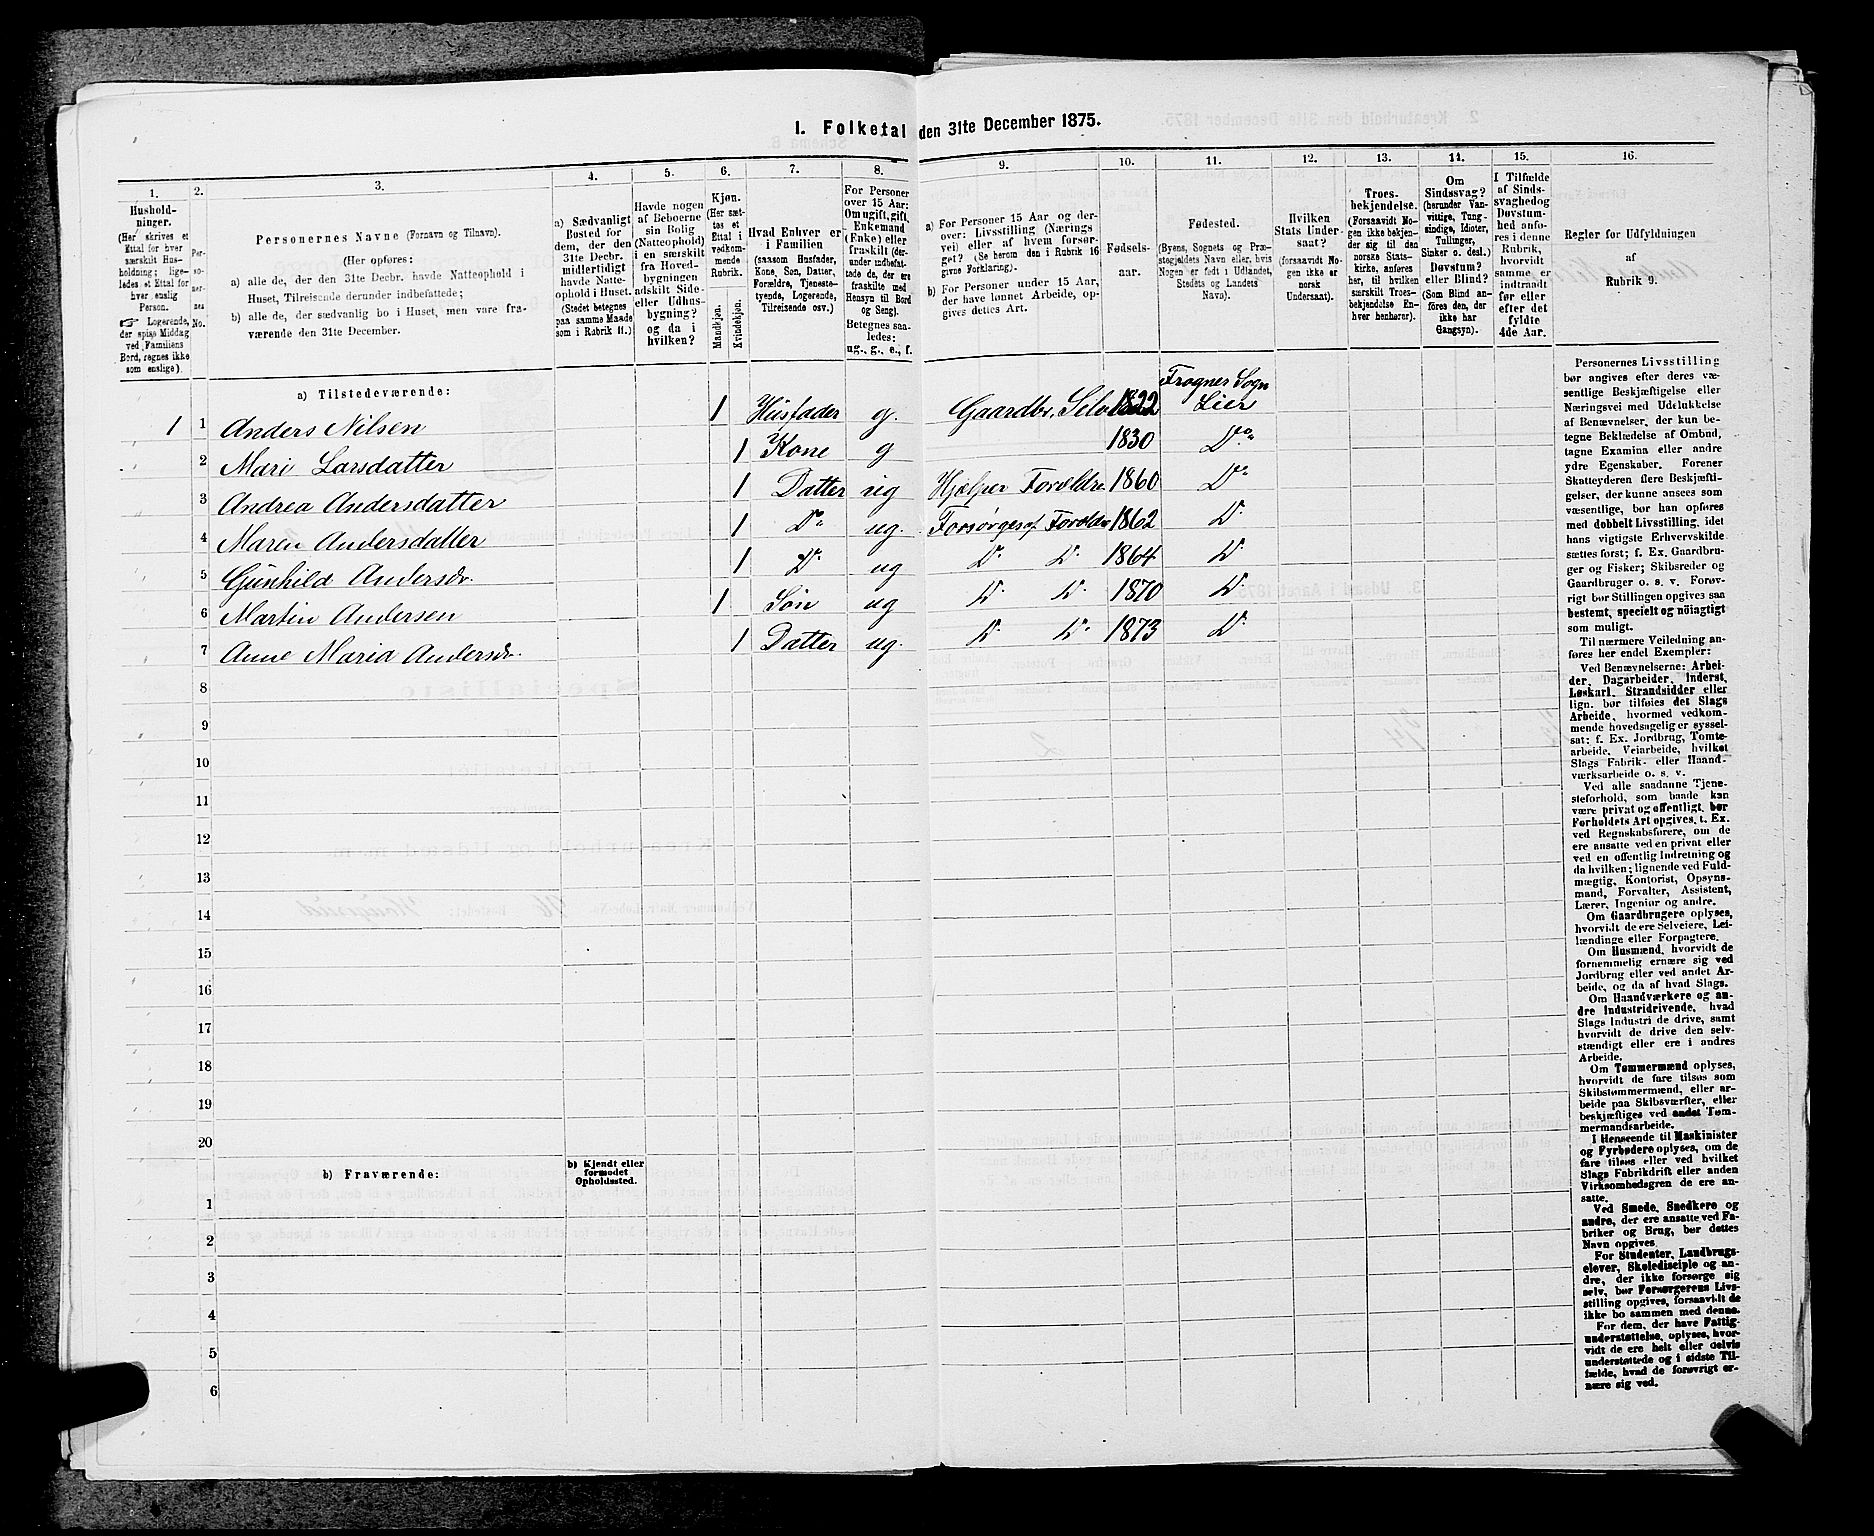 I. Folketal den 31te December 1875.
1. 2. 3. 4. 5. 6. 7. 8. 9. 10. 11. 12. 13. 14. 15. 16.
Hushold-
ninger.
(Her skrives et
Ettal for hver
særskilt Hus-
holdning; lige-
ledes et Ettal for
hver enslig
Person.
☞ Logerende,
der spise Middag
ved Familiens
Bord, regnes ikke
som enslige).
Per-
so-
ner-
nes
No.
Personernes Navne (Fornavn og Tilnavn).
(Her opføres:
a) alle de, der den 31te Decbr. havde Natteophold i
Huset, Tilreisende derunder indbefattede;
b) alle de, der sædvanlig bo i Huset, men vare fra-
værende den 31te December.
a) Sædvanligt
Bosted for
dem, der den
31te Decbr.
midlertidigt
havde Natte-
ophold i Huset.
(Stedet betegnes
paa samme Maade
som i Rubrik 11.)
Havde nogen
af Beboerne
sin Bolig
(Natteophold)
i en særskilt
fra Hoved-
bygningen
adskilt Side-
eller Udhus-
bygning?
og da i
hvilken?
Kjøn.
(Her sæt-
tes et
Ettal i
vedkom-
mende
Rubrik.
Mandkjøn.
Kvindekjøn.
Hvad Enhver er
i Familien
(saasom Husfader,
Kone, Søn, Datter,
Forældre, Tjeneste-
tyende, Logerende,
Tilreisende osv.)
For Personer
over 15 Aar:
Om ugift, gift,
Enkemand
(Enke) eller
fraskilt (der-
under indbefat-
tede de, der ere
fraskilte med
Hensyn til Bord
og Seng).
Betegnes saa-
ledes:
ug., g., e., f.
a) For Personer 15 Aar og der-
over: Livsstilling (Nærings
vei) eller af hvem forsør-
get? (Se herom den i Rubrik 16
givne Forklaring).
b) For Personer under 15 Aar,
der have lønnet Arbeide, op-
gives dettes Art.
Fødsels-
aar.
Fødested.
(Byens, Sognets og Præ-
stegjeldets Navn eller, hvis
Nogen er født i Udlandet,
Stedets og Landets
Navn).
Hvilken
Stats Under-
saat?
(forsaavidt No-
gen ikke er
norsk
Undersaat).
Troes-
bekjendelse.
(Forsaavidt No-
gen ikke bekjen-
der sig til den
norske Stats-
kirke, anføres
her, til hvilken
særskilt Troes-
bekjendelse En-
hver henhører).
Om
Sindssvag?
(herunder Van-
vittige, Tung-
sindige, Idioter,
Tullinger,
Sinker o. desl.)
Døvstum?
eller Blind?
(Som Blind an-
føres den, der
ikke har
Gangsyn).
I Tilfælde
af Sinds-
svaghed og
Døvstum-
hed anfø-
res i denne
Rubrik,
hvorvidt
samme er
indtraadt
før eller
efter det
fyldte
4de Aar.
Regler for Udfyldningen
af
Rubrik 9.
a) Tilstedeværende:
1 1 Anders Nilsen 1 Husfader g. Gaardbr. Selv 1822 Frogner Sogn Lier
2 Mari Larsdatter 1 Kone g 1830 Do
3 Andrea Andersdatter 1 Datter ug Hjelper Forældre 1860 Do
4 Maren Andersdatter 1 Do ug. Forsørges af Foreldre 1862 D.
5 Gunhild Andersdr. 1 D. ug D. D. 1864 D.
6 Martin Andersen 1 Søn ug D. D. 1870 D.
7 Anne Maria Andersdr. 1 Datter ug. D. D. 1873 D.
8
9
10
11
12
13
14
15
16
17
18
19
20
b) Fraværende:
b) Kjendt eller
formodet
Opholdssted.
1
2
3
4
5
6
Personernes Livsstilling
bør angives efter deres væ-
sentlige Beskjæftigelse eller
Næringsvei med Udelukkelse
af Benævnelser, der kun be-
tegne Beklædelse af Ombud,
tagne Examina eller andre
ydre Egenskaber. Forener
Skatteyderen flere Beskjæfti-
gelser, der kunne ansees som
væsentlige, bør han opføres
med dobbelt Livsstilling, idet
hans vigtigste Erhvervskilde
sættes først; f. Ex. Gaardbru-
ger og Fisker; Skibsreder og
Gaardbruger o. s. v. Forøv-
rigt bør Stillingen opgives saa
bestemt, specielt og nöiagtigt
som muligt.
Til nærmere Veiledning an-
føres her endel Exempler:
Ved Benævnelserne: Arbei-
der, Dagarbeider, Inderst,
Løskarl, Strandsidder eller
lign. bør tilføies det Slags
Arbeide, hvormed vedkom-
mende hovedsagelig er syssel-
sat; f. Ex. Jordbrug, Tomte-
arbeide, Veiarbeide, hvilket
Slags Fabrik- eller Haand-
værksarbeide o. s. v.
Ved alle saadanne Tjene-
steforhold, som baade kan
være privat og offentligt, bør
Forholdets Art opgives, t. Ex.
ved Regnskabsførere, om de
ere ansatte ved en privat eller
ved en offentlig Indretning og
da hvilken; lignende ved Fuld-
mægtig, Kontorist, Opsyns-
mand, Forvalter, Assistent,
Lærer, Ingeniør og andre.
Om Gaardbrugere oplyses,
hvorvidt de ere Selveiere, Lei-
lændinge eller Forpagtere.
Om Husmænd, hvorvidt de
fornemmelig ernære sig ved
Jordbrug eller ved andet Ar-
beide, og da af hvad Slags.
Om Haandværkere og an-
dre Industridrivende, hvad
Slags Industri de drive, samt
hvorvidt de drive den selv-
stændigt eller ere i andres
Arbeide.
Om Tømmermænd oplyses,
hvorvidt de fare tilsøs som
Skibstømmermænd, eller ar-
beide paa Skibsværfter, eller
beskjæftiges ved andet Tøm-
mermandsarbeide.
I Henseende til Maskinister
og Fyrbødere oplyses, om de
fare tilsøs eller ved hvilket
Slags Fabrikdrift eller anden
Virksomhedsgren de ere an-
satte.
Ved Smede, Snedkere og
andre, der ere ansatte ved Fa-
briker og Brug, bør dettes
Navn opgives.
For Studenter, Landbrugs-
elever, Skoledisciple og an-
dre, der ikke forsørge sig
selv, bør Forsørgerens Livs-
stilling opgives, forsaavidt de
ikke bo sammen med denne.
For dem, der have Fattig-
understøttelse, oplyses, hvor-
vidt de ere helt eller delvis
understøttede og i sidste Til-
fælde, hvad de forøvrigt er-
nære sig ved.